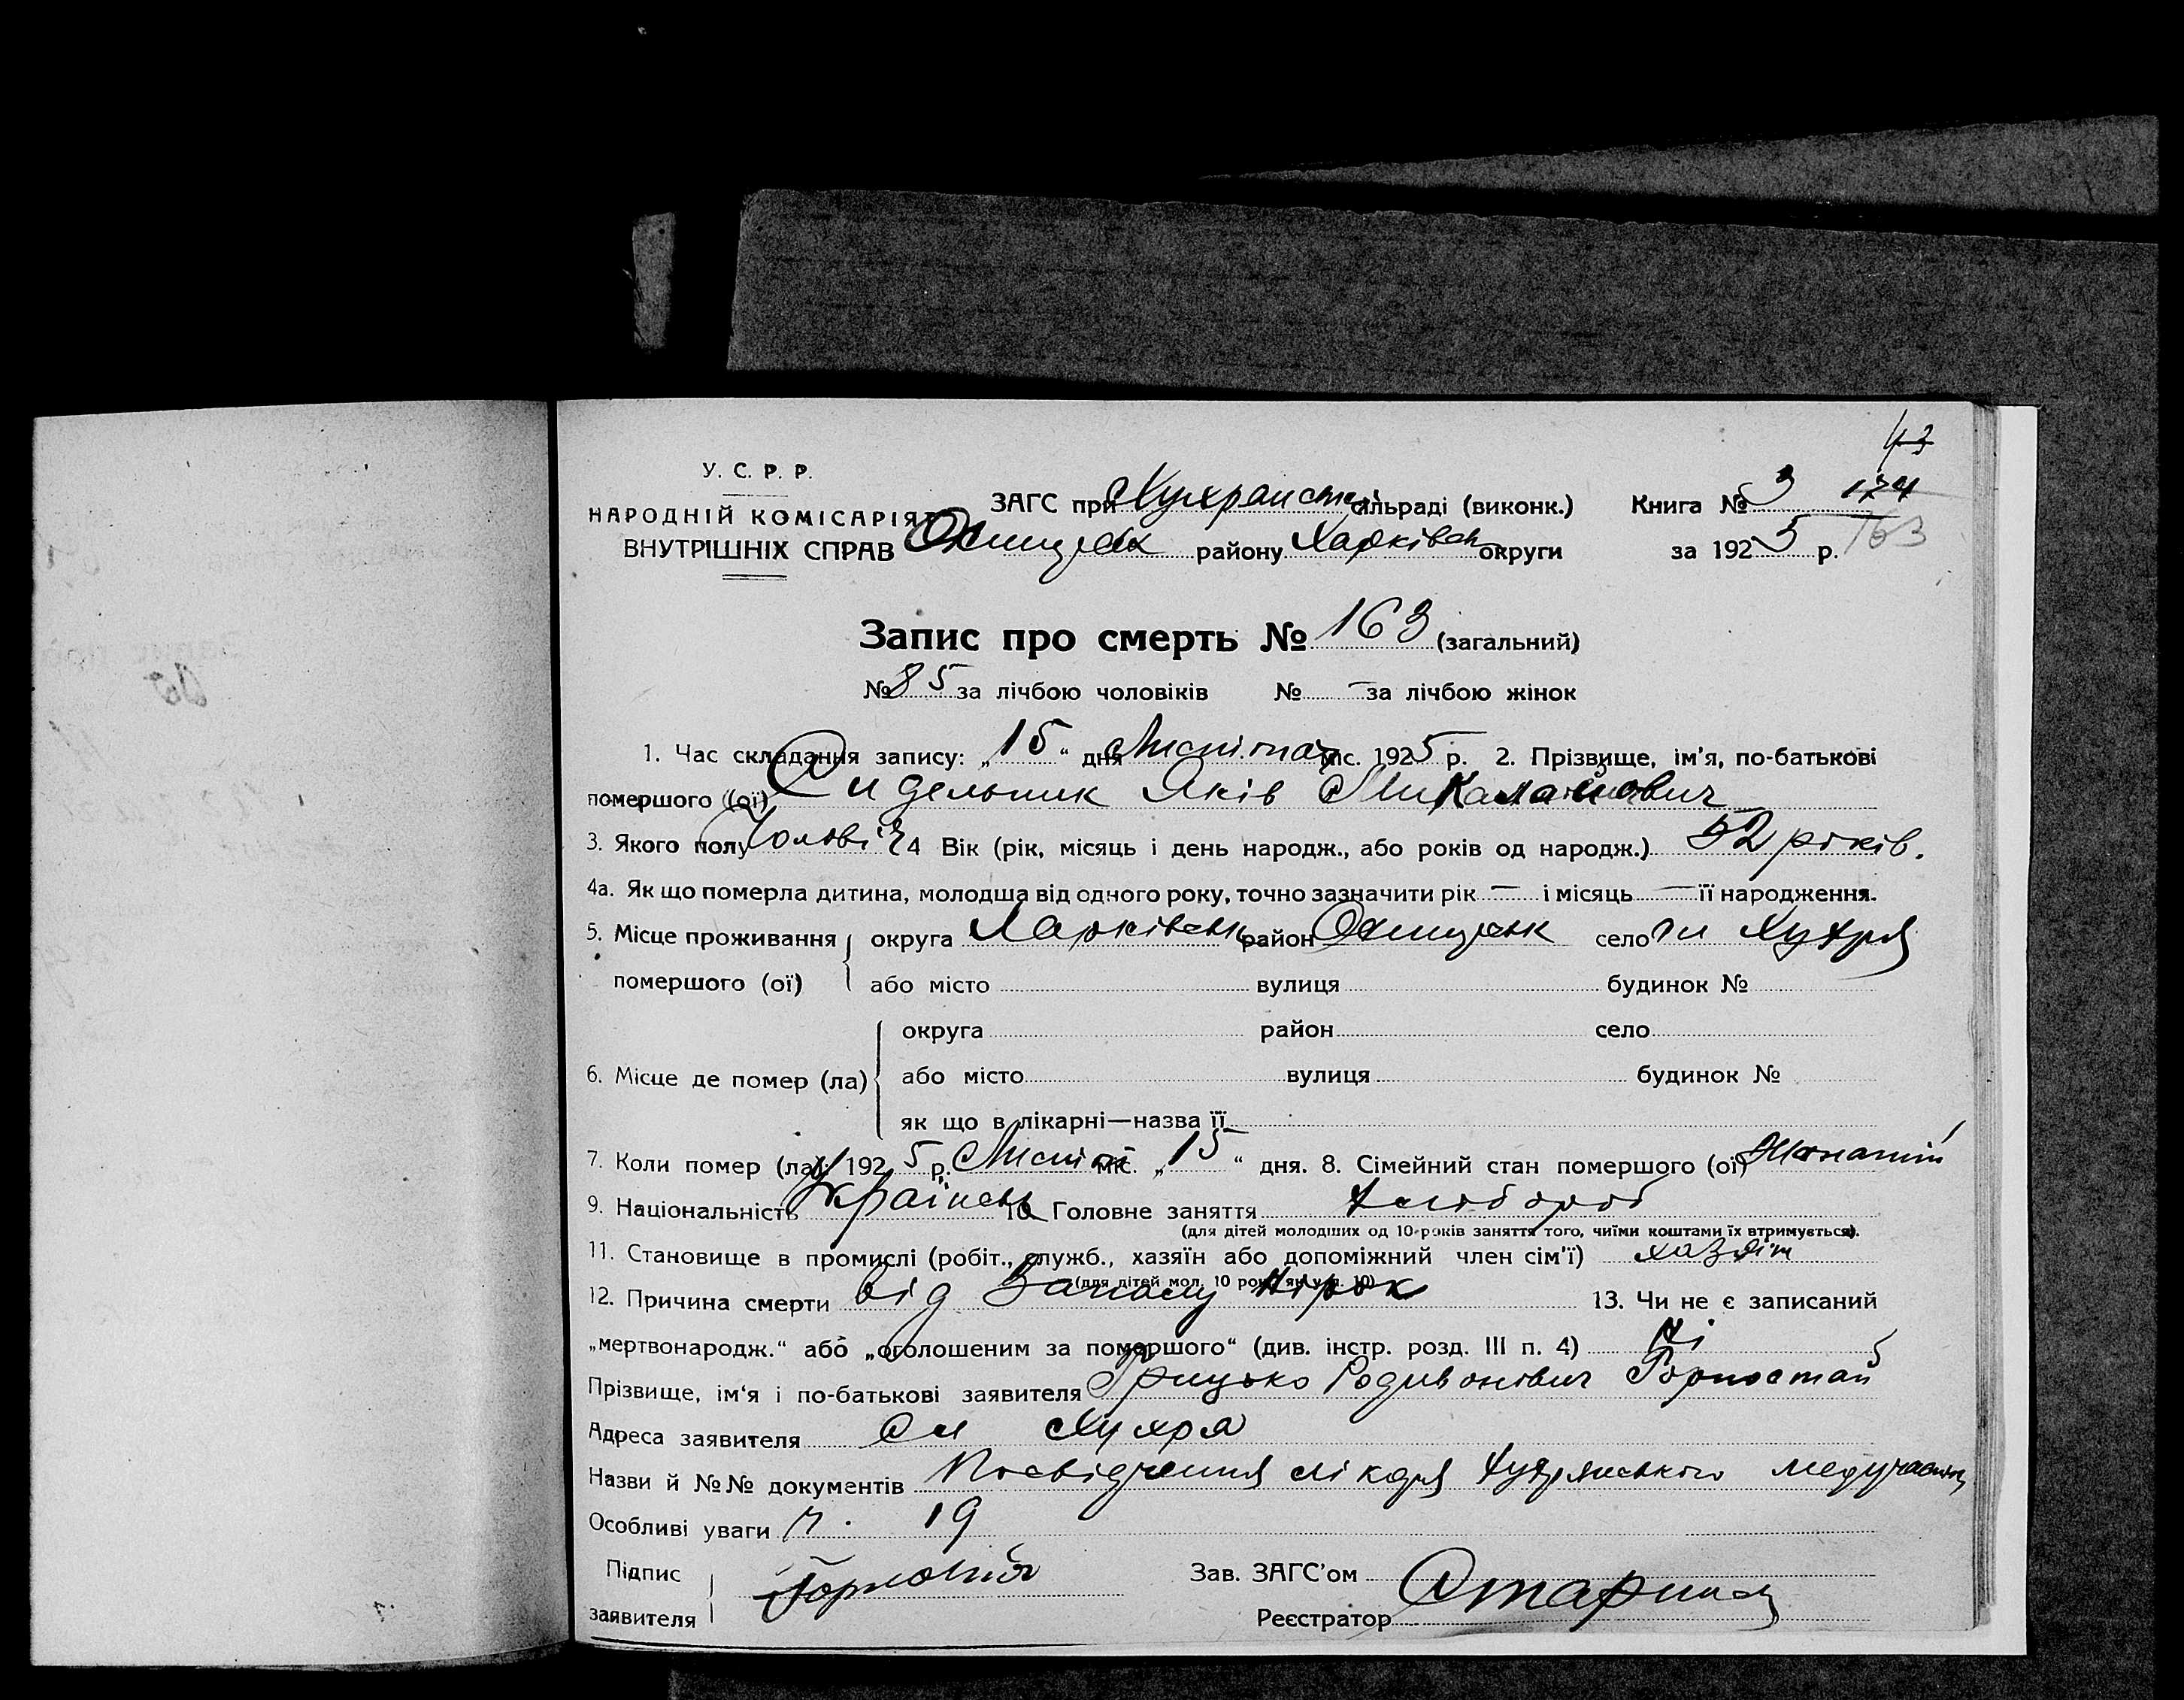 43
У. С. Р. Р.
НАРОДНІЙ КОМІСАРІЯТ
ВНУТРІШНІХ СПРАВ
ЗАГС при Хухранській сільраді (виконк.) Книга № 3 174
Охтирськ району Харківськ округи за 1925 р. 163
Запис про смерть № 163 (загальний)
№ 85 за лічбою чоловіків № — за лічбою жінок
1. Час складання запису: „15“ дня Листопад міс. 1925 р. 2. Прізвище, ім'я, по-батькові
помершого (ої) Сидельник Яків Миколайович
3. Якого полу Чоловіч 4 Вік (рік, місяць і день народж., або років од народж.) 52 років.
4а. Як що померла дитина, молодша від одного року, точно зазначити рік — і місяць — її народження.
5. Місце проживання округа Харківськ район Охтирськ село Хухря
помершого (ої) або місто вулиця будинок №
округа район село
6. Місце де помер (ла) або місто вулиця будинок №
як що в лікарні—назва її
7. Коли помер (ла) 1925 р. міс. „15“ дня. 8. Сімейний стан помершого (ої) Жонатий
9. Національність Українець 10 Головне заняття хлібороб
(для дітей молодших од 10-років заняття того, чиїми коштами їх втримується).
11. Становище в промислі (робіт., служб., хазяїн або допоміжний член сім'ї) хазяїн
(для дітей мол. 10 рок. як у п. 10)
12. Причина смерти від нірок 13. Чи не є записаний
„мертвонародж.“ або „оголошеним за помершого“ (див. інстр. розд. III п. 4) Ні
Прізвище, ім'я і по-батькові заявителя Грицько Родивонович Горностай
Адреса заявителя Сл Хухра
Назви й №№ документів Посвідчення лікаря Хухрянського
Особливі уваги 19
Підпис
заявителя
Зав. ЗАГС'ом
Реєстратор